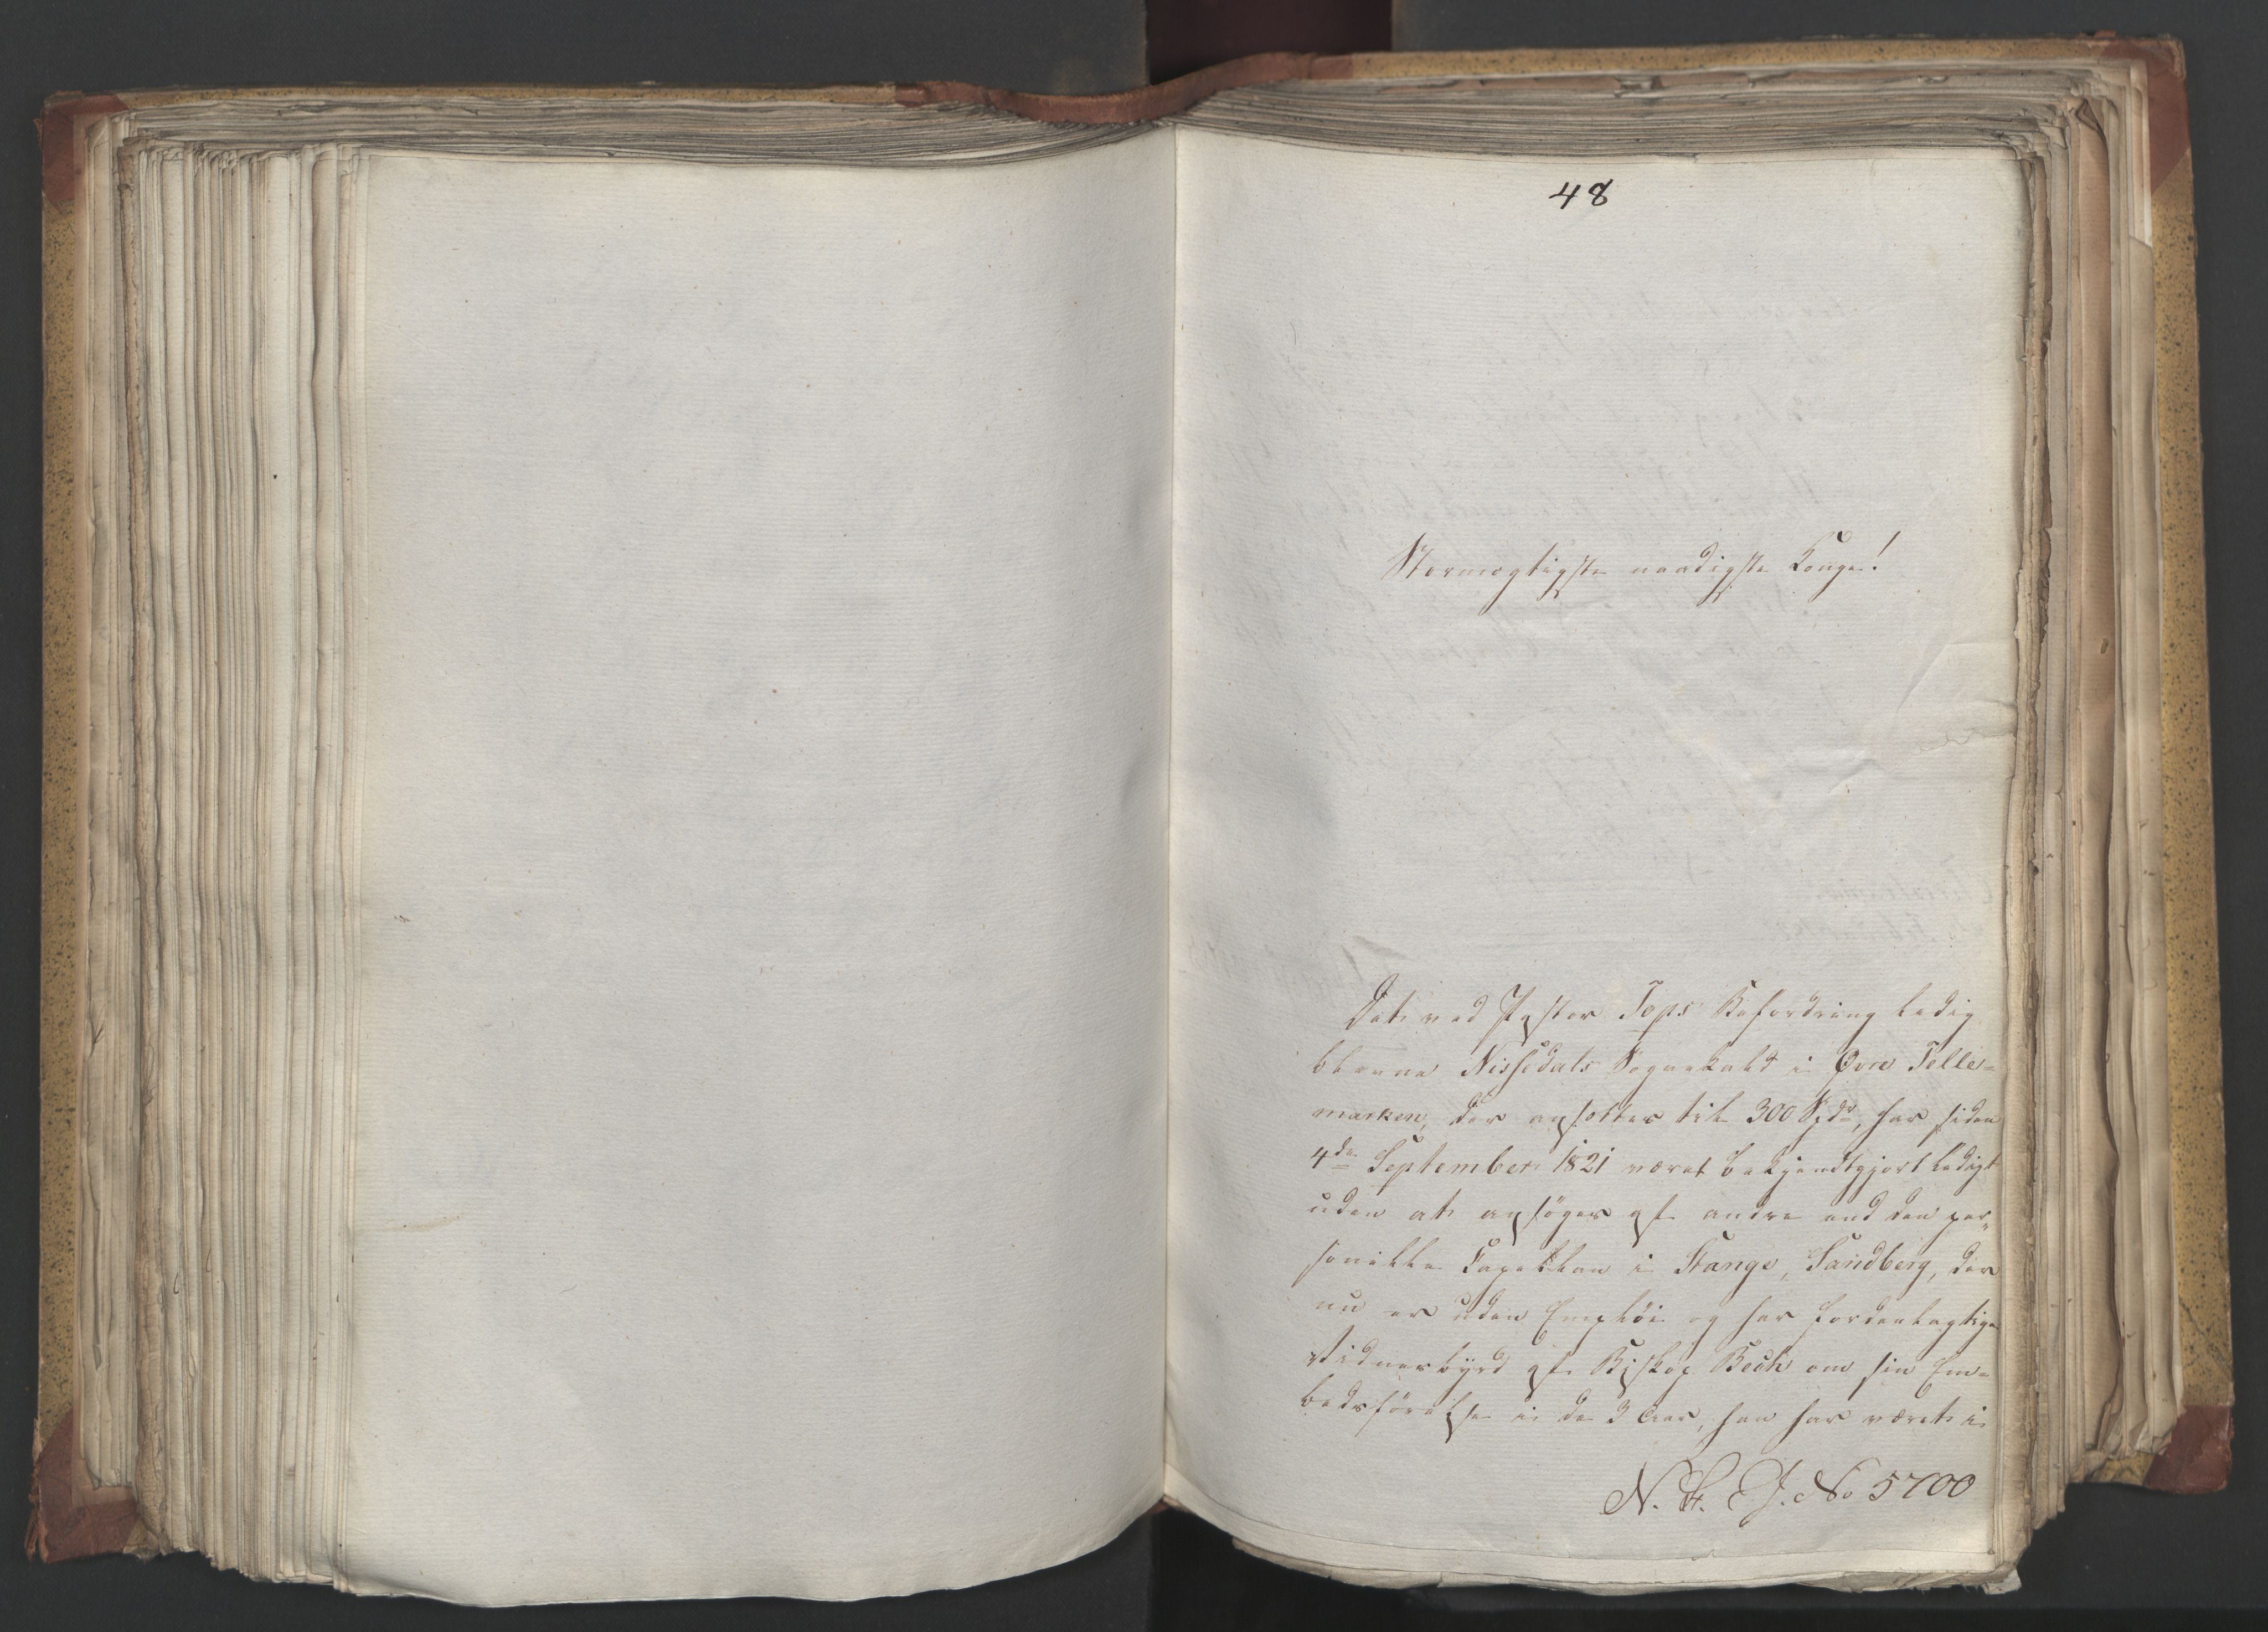 48
Stormægtigste naadigste Konge!
Det ved Pastor Tops Befordring ledig
blevne Nissedals Sognekald i Øvre Telle-
marken, der ansættes til 300 Spdr, har siden
4de September 1821 været bekjendtgjort ledigt
uden at ansøges af andre end den per-
sonelle Capellan i Stange, Sandberg, der
nu er uden Emploi og har fordeelagtige
Vidnesbyrd af Biskop Bech om sin Em-
bedsførelse i de 3 Aar, han har været i
N. S. J. No 5700